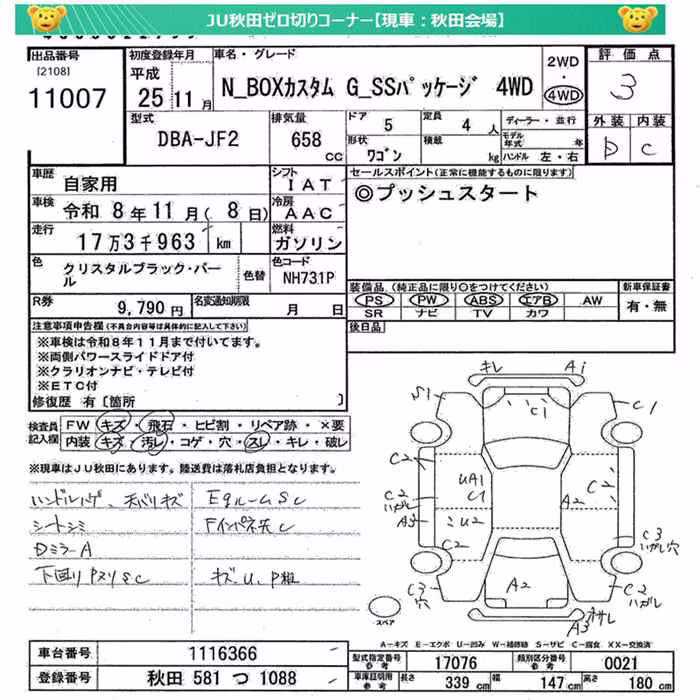 JU秋田ゼロ切りコーナー【現車：秋田会場】
出品番号
[2108]
11007
初度登録年月
平成
25 11月
車名・グレード
N_BOXカスタム G_SSパッケージ 4WD
2WD
・
4WD
評価点
3
外装 内装
D C
型式
DBA-JF2
排気量
658
cc
ドア 5
定員 4 人
形状 ワゴン
積載 kg
ディーラー・並行
モデル年式 年
ハンドル 左・右
車歴 自家用
シフト IAT
車検 令和 8年 11月( 8日)
冷房 AAC
走行 17万3千963 km
燃料 ガソリン
色 クリスタルブラック・パール
色替
色コード NH731P
R券 9,790円
名変通知期限 月 日
セールスポイント(正常に機能するものに限ります)
◎プッシュスタート
装備品 (純正品に限り○をつけてください)
PS PW ABS エアB AW
SR ナビ TV カワ
新車保証書
有・無
後日品
注意事項申告欄(不具合内容等は具体的に記入して下さい)
※車検は令和8年11月まで付いてます。
※両側パワースライドドア付
※クラリオンナビ・テレビ付
※ETC付
修復歴 有〔箇所 〕
検査員記入欄
FW キズ・飛石・ヒビ割・リペア跡・×要
内装 キズ・汚レ・コゲ・穴・スレ・キレ・破レ
※現車はJU秋田にあります。陸送費は落札店負担となります。
ハンドルハゲ、天バリキズ
シートシミ
DミラーA
下回りPスリSC
EgルームSC
FインパネC
キズ、U、P粒
キレ A1
S1 C1 C1
C2 C2
UA1
C1
A2
C2
ハガレ
A3
C2
C3
ハガレ穴
C3
穴
A2
C2
ハガレ
A3
スペア
A-キズ E-エクボ U-凹み W-補修跡 S-サビ C-腐食 XX-交換済
車台番号 1116366
登録番号 秋田 581 つ 1088
型式指定番号
参考
17076
類別区分番号
参考
0021
車庫証明用
参考
長さ 339 cm 幅 147 cm 高さ 180 cm